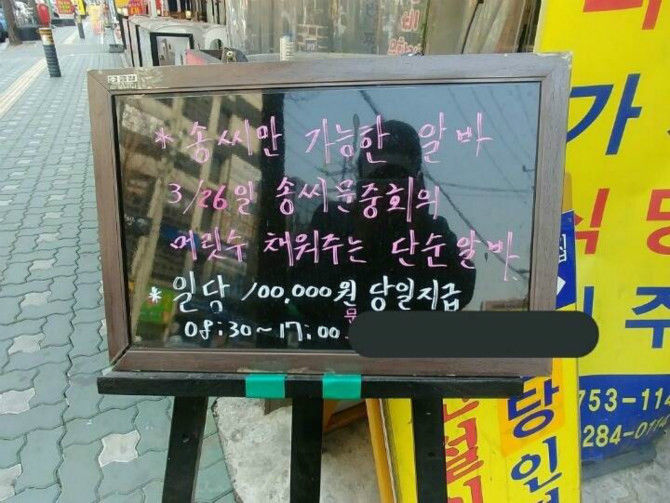 * 송씨만 가능한 알바
3/26일 송씨문중회의
머릿수 채워주는 단순알바
* 일당 100,000원 당일지급
08:30~17:00 문
가
식당
주
당인
753-114
284-0114